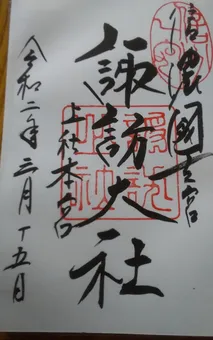 信濃國一宮
諏訪大社
上社本宮
令和二年三月十五日